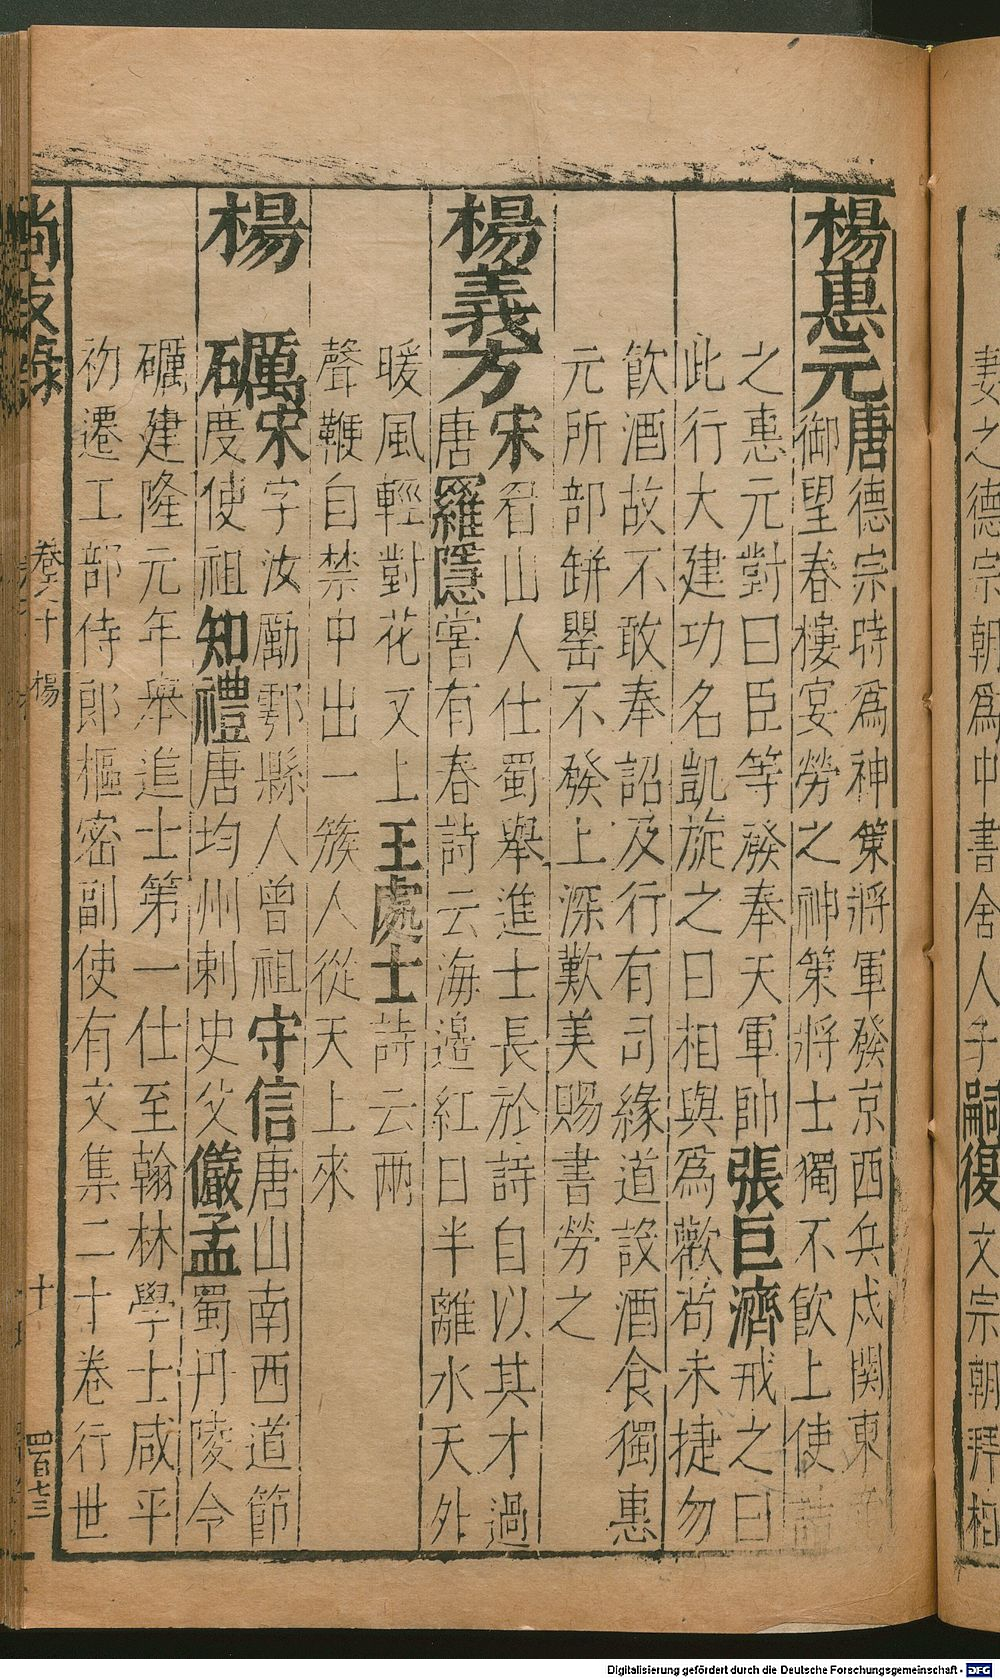 楊惠元唐德宗時爲神策將軍發京西兵戍關東
御望春樓宴勞之神策將士獨不飮上使詰
之惠元對曰臣等發奉天軍帥張巨濟戒之曰
此行大建功名凱旋之日相與爲歡苟未捷勿
飮酒故不敢奉詔及行有司緣道設酒食獨惠
元所部缾罌不發上深歎美賜書勞之
楊義方宋眉山人仕蜀舉進士長於詩自以其才過
唐羅隱嘗有春詩云海邉紅日半離水天外
暖風輕對花又上王處士詩云兩
聲鞭自禁中出一簇人從天上來
楊礪宋字汝勵鄠縣人曾祖守信唐山南西道節
度使祖知禮唐均州刺史父儼孟蜀丹陵令
礪建隆元年舉進士第一仕至翰林學士咸平
初遷工部侍郎樞密副使有文集二十卷行世
尚友錄 卷之十 楊 十 四百七三
妻之德宗朝爲中書舍人子嗣復文宗朝拜相
Digitalisierung gefördert durch die Deutsche Forschungsgemeinschaft - DFG